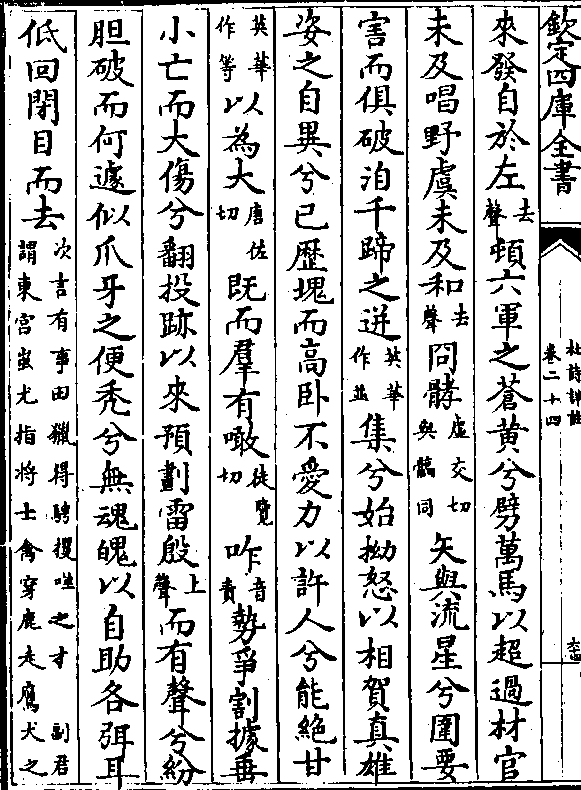 欽定四庫全書
杜詩詳註
卷二十四
來發自於左去聲頓六軍之蒼黃兮劈萬馬以超過材官
未及唱野虞未及和去聲冏髇虛交切與髐同矢與流星兮圍要
害而俱破洎千蹄之迸英華作並集兮始拗怒以相賀真雄
姿之自異兮已歷塊而高卧不愛力以許人兮能絶甘
英華作等以為大唐佐切既而羣有噉徒覽切咋音責勢爭割據垂
小亡而大傷兮翻投跡以來預劃雷殷上聲而有聲兮紛
胆破而何遽似爪牙之便秃兮無魂魄以自助各弭耳
低回閉目而去次言有事田獵得騁攫噬之才　副君謂東宮蚩尤指將士禽穿鹿走鷹犬之